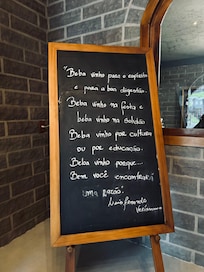 "Beba vinho para o espírito
e para a boa digestão.
Beba vinho na festa e
beba vinho na solidão
Beba vinho por cultura
ou por educação.
Beba vinho porque...
Bem você encontrará
uma razão"
Luis Fernando
Veríssimo